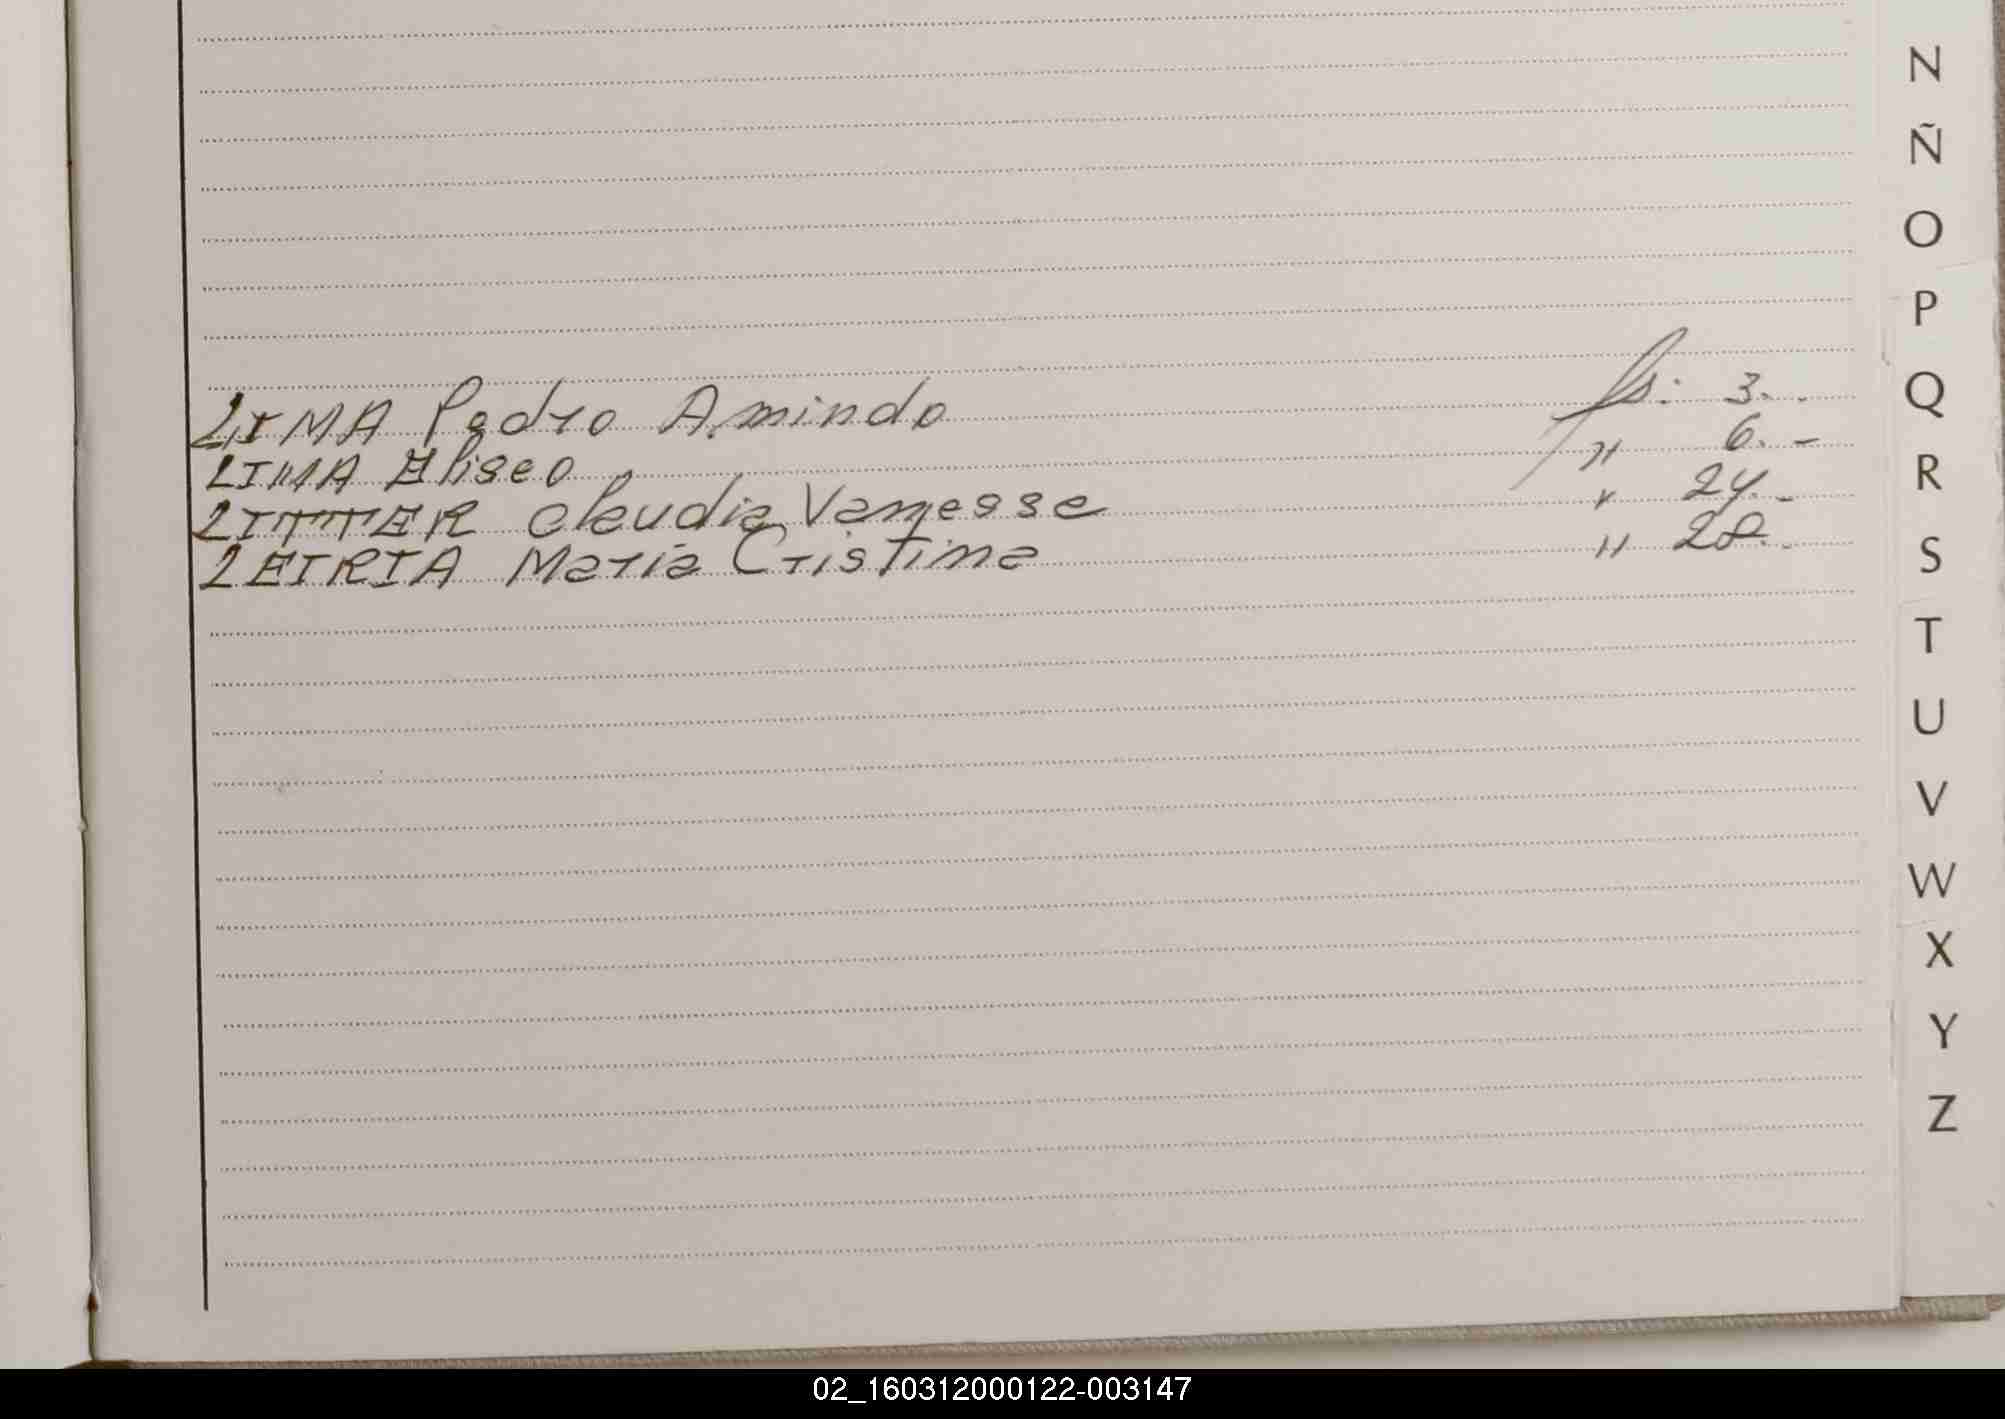 N
Ñ
O
P
Q
R
S
T
U
V
W
X
Y
Z
LIMA Pedro Amindo fs: 3.-
LIMA Eliseo " 6.-
LITTER Claudia Vanesse " 24.-
LEIRIA Maria Cristina " 28.-
02_160312000122-003147